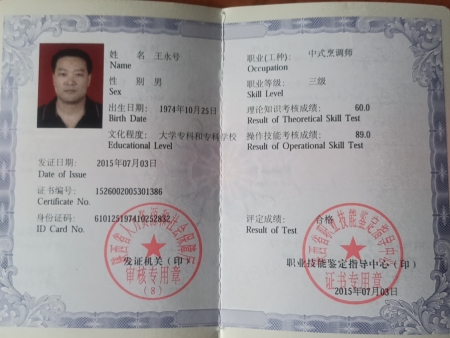 姓 名 王永号
Name
性 别 男
Sex
出生日期: 1974年10月25日
Birth Date
文化程度: 大学专科和专科学校
Educational Level
发证日期: 2015年07月03日
Date of Issue
证书编号: 1526002005301386
Certificate No.
身份证码: 610125197410252832
ID Card No.
发证机关(印)
审核专用章
(8)
职业(工种): 中式烹调师
Occupation
职业等级: 三级
Skill Level
理论知识考核成绩: 60.0
Result of Theoretical Skill Test
操作技能考核成绩: 89.0
Result of Operational Skill Test
评定成绩: 合格
Result of Test
职业技能鉴定指导中心(印)
证书专用章
2015年07月03日